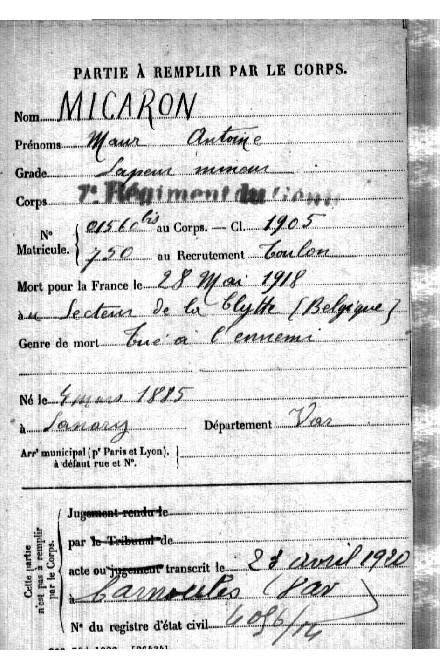 PARTIE À REMPLIR PAR LE CORPS.
Nom MICARON
Prénoms Maur Antoine
Grade Sapeur mineur
Corps 7e Régiment du Génie
N° Matricule. { 01560 bis au Corps. — Cl. 1905
750 au Recrutement Toulon
Mort pour la France le 28 Mai 1918
à au Secteur de la Clytte (Belgique)
Genre de mort Tué à l'ennemi
Né le 4 mars 1885
à Sanary Département Var
Arrt municipal (pr Paris et Lyon), à défaut rue et N°.
Cette partie n'est pas à remplir par le Corps.
Jugement rendu le
par le Tribunal de
acte ou jugement transcrit le avril 1920
à Carnoules (Var
N° du registre d'état civil